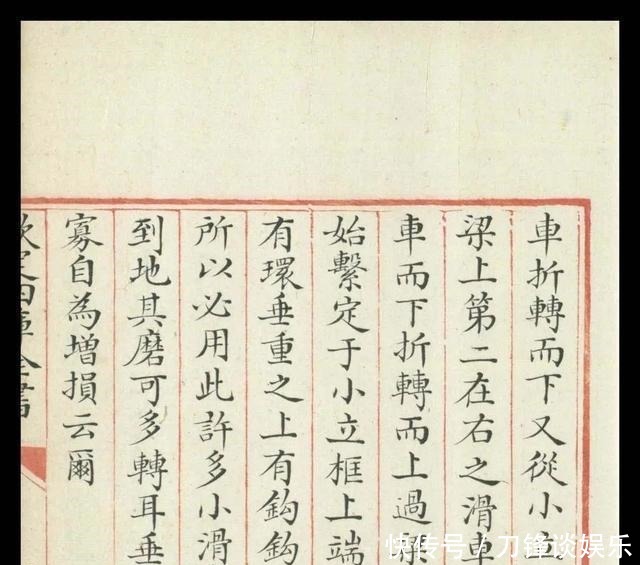 車折轉而下又從小立
梁上第二在右之滑車
車而下折轉而上過梁
始繫定于小立框上端
有環垂重之上有鈎鈎
所以必用此許多小滑
到地其磨可多轉耳垂
寡自為增損云爾
欽定四庫全書
快传号/刀锋谈娱乐